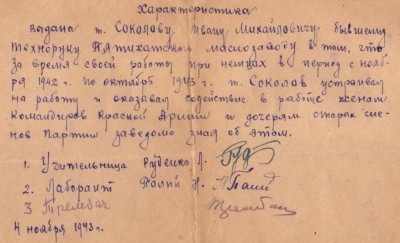 Характеристика
выдана т. Соколову Ивану Михайловичу бывшему
Техноруку Пятихатского маслозаводу в том, что
за время своей работы при немцах в период с нояб-
ря 1942 г. по октябрь 1943 г. т. Соколов устраивал
на работу и оказывал содействие в работе женам
Командиров Красной Армии и дочерям старых чле-
нов Партии заведомо зная об этом.
1. Учительница Руденко Л.
2. Лаборант Н.
3 Трембач
4 ноября 1943 г.